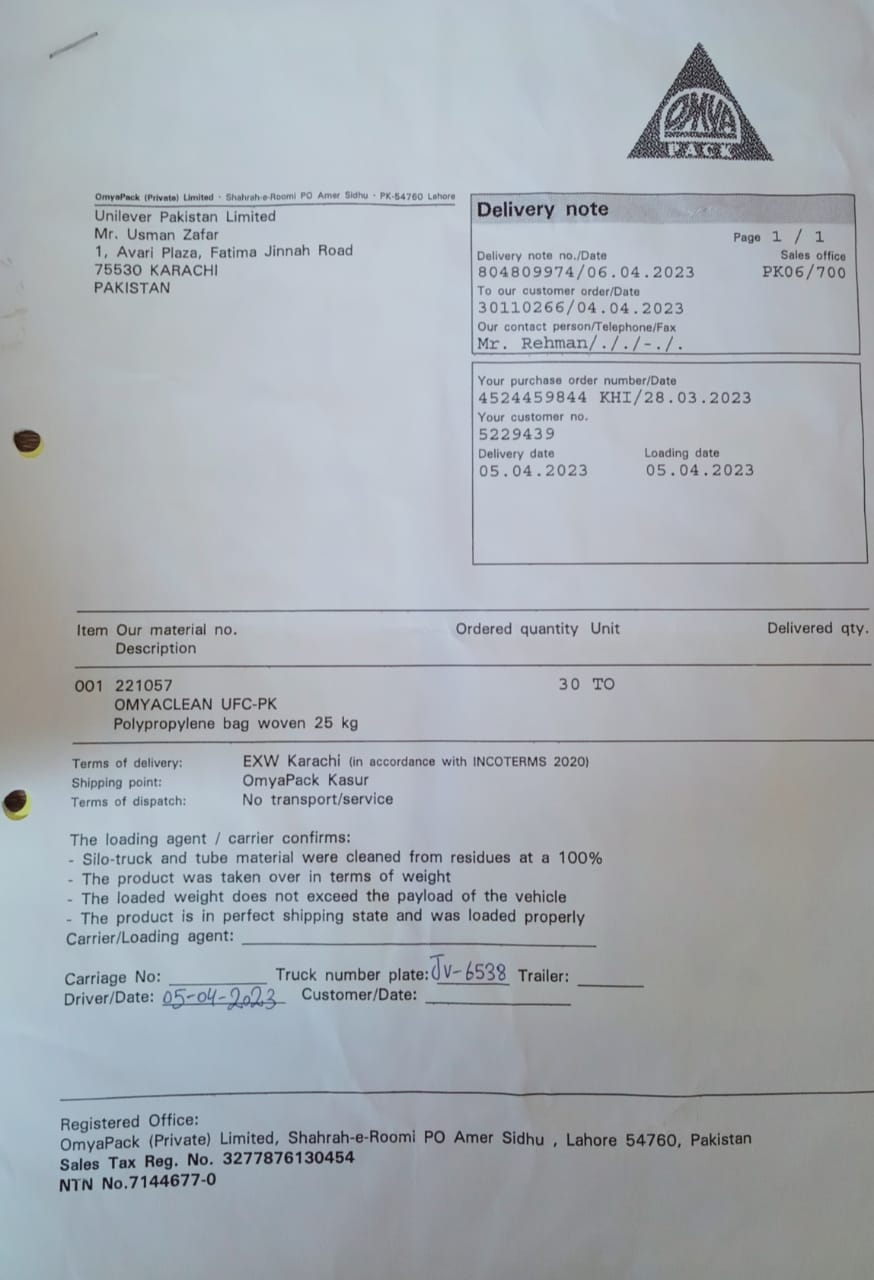 OMYA
PACK
OmyaPack (Private) Limited · Shahrah-e-Roomi PO Amer Sidhu · PK-54760 Lahore
Unilever Pakistan Limited
Mr. Usman Zafar
1, Avari Plaza, Fatima Jinnah Road
75530 KARACHI
PAKISTAN
Delivery note
Page 1 / 1
Delivery note no./Date Sales office
804809974/06.04.2023 PK06/700
To our customer order/Date
30110266/04.04.2023
Our contact person/Telephone/Fax
Mr. Rehman/././-./.
Your purchase order number/Date
4524459844 KHI/28.03.2023
Your customer no.
5229439
Delivery date Loading date
05.04.2023 05.04.2023
Item Our material no. Ordered quantity Unit Delivered qty.
Description
001 221057 30 TO
OMYACLEAN UFC-PK
Polypropylene bag woven 25 kg
Terms of delivery: EXW Karachi (in accordance with INCOTERMS 2020)
Shipping point: OmyaPack Kasur
Terms of dispatch: No transport/service
The loading agent / carrier confirms:
- Silo-truck and tube material were cleaned from residues at a 100%
- The product was taken over in terms of weight
- The loaded weight does not exceed the payload of the vehicle
- The product is in perfect shipping state and was loaded properly
Carrier/Loading agent:
Carriage No: Truck number plate: JV-6538 Trailer:
Driver/Date: 05-04-2023 Customer/Date:
Registered Office:
OmyaPack (Private) Limited, Shahrah-e-Roomi PO Amer Sidhu , Lahore 54760, Pakistan
Sales Tax Reg. No. 3277876130454
NTN No.7144677-0